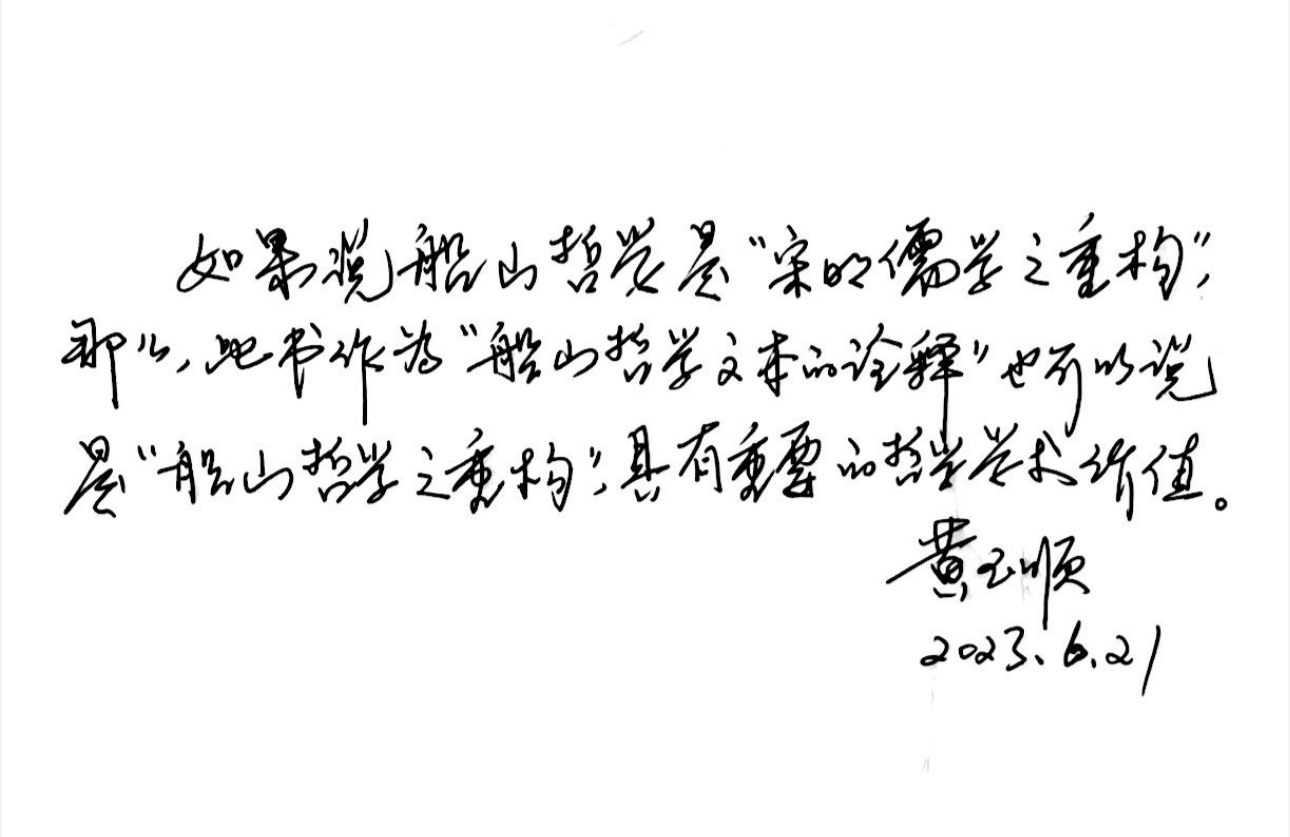 如果说船山哲学是“宋明儒学之重构”，
那么，此书作为“船山哲学文本的诠释”也可以说
是“船山哲学之重构”，具有重要的哲学学术价值。
黄玉顺
2023.6.21